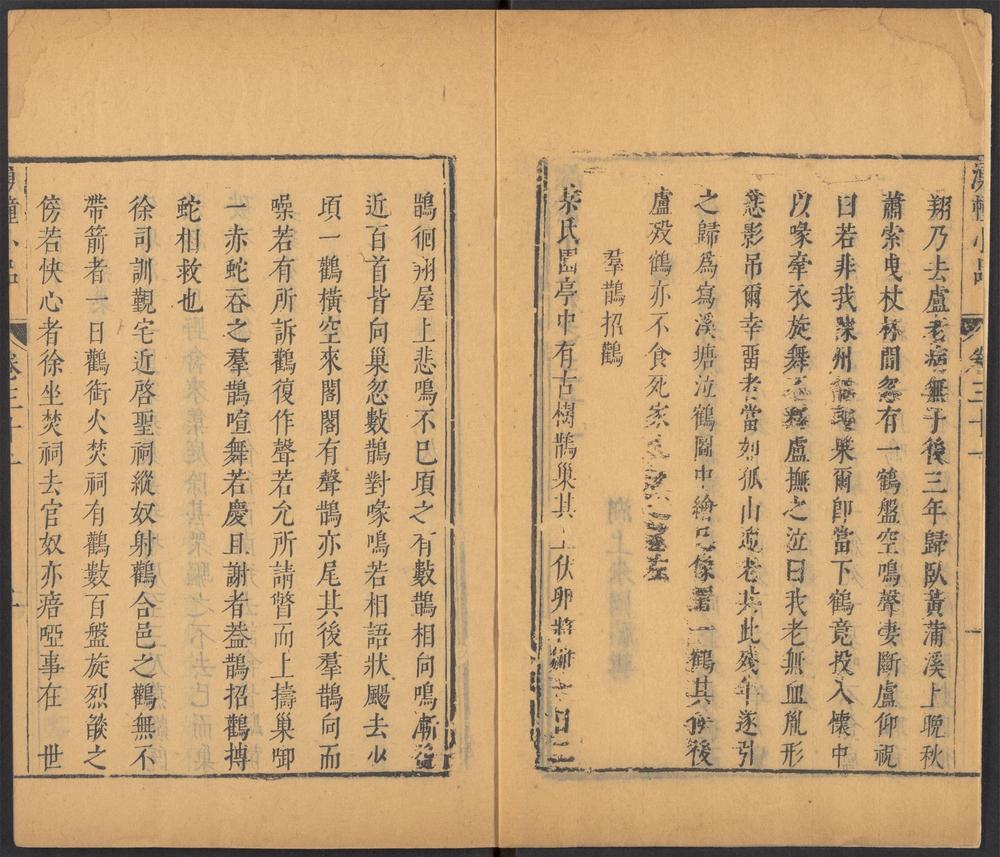 翔乃去盧老病無子後三年歸臥黃蒲溪上晚秋
蕭索曳杖林間忽有一鶴盤空鳴聲悽斷盧仰視
曰若非我 州 耶果爾即當下鶴竟投入懷中
以喙牽衣旋舞不釋盧撫之泣曰我老無血胤形
悲影吊爾幸畱者當如孤山逋老共此残年遂引
之歸為寫溪塘泣鶴圖中繪己像置一鶴其傍後
盧歿鶴亦不食死家
羣鵲招鸛
某氏園亭中有古樹鵲巢其上伏卵將
鵲徊翔屋上悲鳴不已頃之有數鵲相向鳴漸益
近百首皆向巢忽數鵲對喙鳴若相語狀颺去少
頃一鸛橫空來閣閣有聲鵲亦尾其後羣鵲向而
噪若有所訴鸛復作聲若允所請瞥而上擣巢啣
一赤蛇吞之羣鵲喧舞若慶且謝者葢鵲招鸛搏
蛇相救也
徐司訓觀宅近啓聖祠縱奴射鸛合邑之鸛無不
帶箭者一日鸛銜火焚祠有鸛數百盤旋烈燄之
傍若快心者徐坐焚祠去官奴亦瘖啞事在　世
湧幢小品
卷三十一